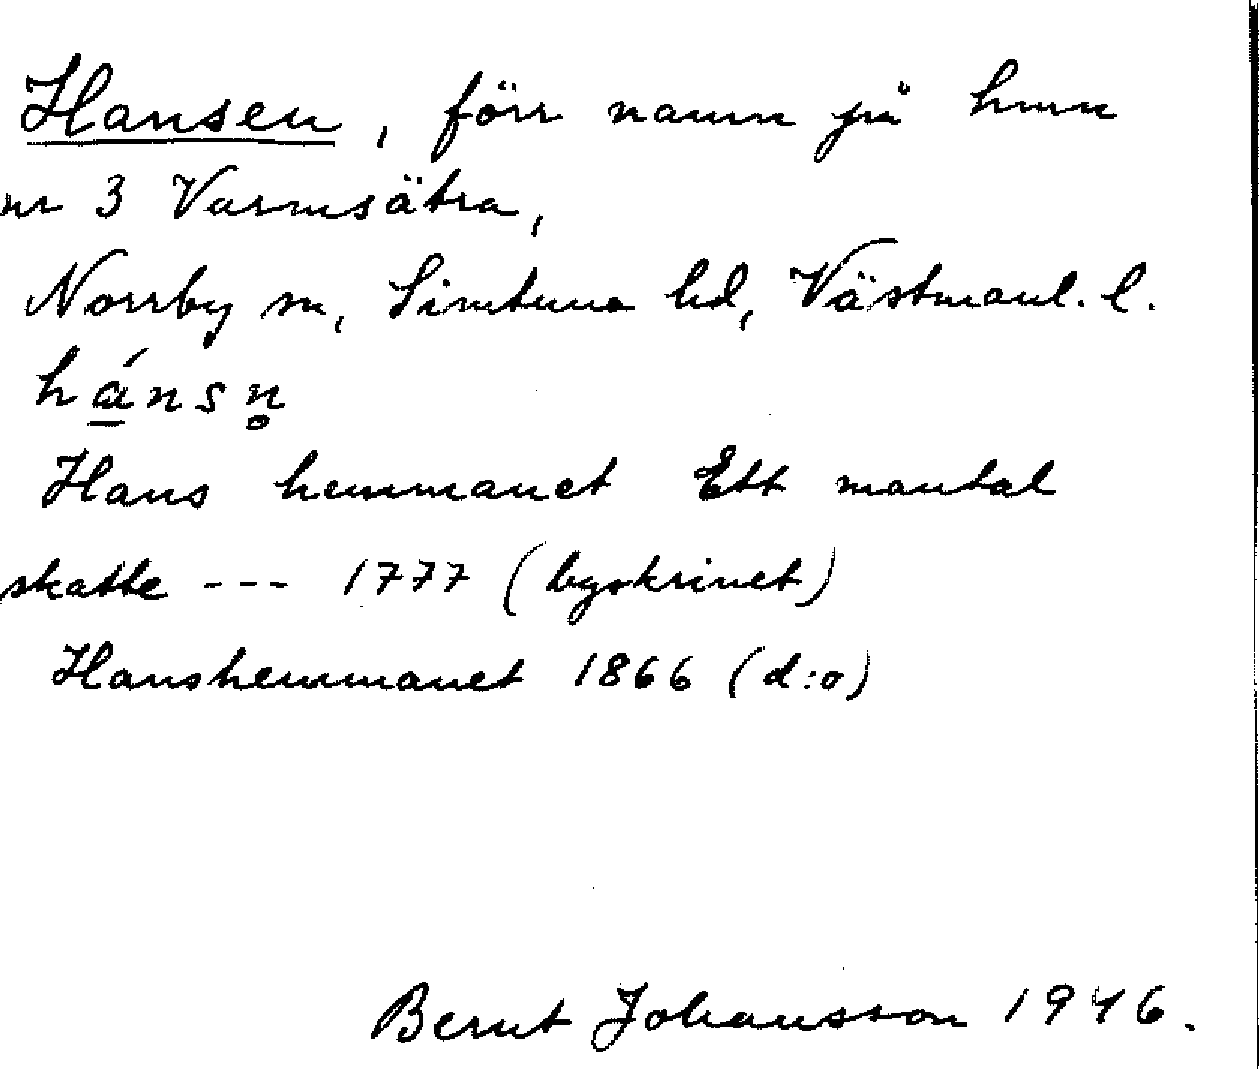 Hansen, förr namn på hmn
nr 3 Varmsätra,
Norrby sn, Simtuna hd, Västmanl. l.
hánsn̥
Hans hemmanet Ett mantal
skatte --- 1777 (byskrinet)
Hanshemmanet 1866 (d:o)
Bernt Johansson 1946.